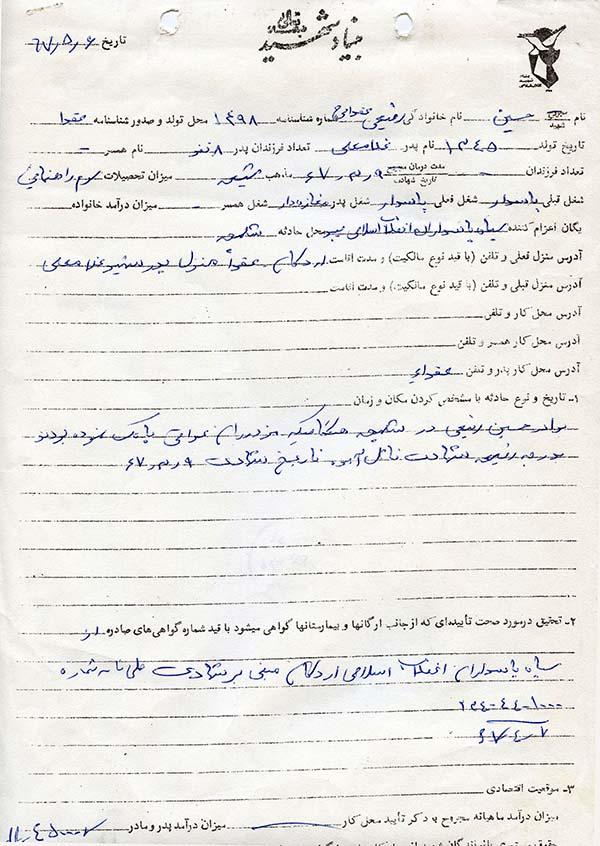 بسمه تعالی
بنیاد شهید
تاریخ ۶۷/۵/۶
نام شهید حسین نام خانوادگی رفیعی عقدائی شماره شناسنامه ۱۳۹۸ محل تولد و صدور شناسنامه عقدا
تاریخ تولد ۱۳۴۵ نام پدر غلامعلی تعداد فرزندان پدر ۸ نفر نام همسر -
تعداد فرزندان - تاریخ شهادت ۶۷/۳/۹ مذهب شیعه میزان تحصیلات سوم راهنمایی
شغل قبلی پاسدار شغل فعلی پاسدار شغل پدر مغازه‌دار شغل همسر - میزان درآمد خانواده
یگان اعزام کننده سپاه پاسداران انقلاب اسلامی محل حادثه شلمچه
آدرس منزل فعلی و تلفن (با قید نوع مالکیت) و مدت اقامت اردکان عقدا منزل پدر شهید غلامعلی
آدرس منزل قبلی و تلفن (با قید نوع مالکیت) و مدت اقامت
آدرس محل کار و تلفن
آدرس محل کار همسر و تلفن
آدرس محل کار پدر و تلفن عقداء
۱- تاریخ و نوع حادثه با مشخص کردن مکان و زمان
برادر حسین رفیعی در شلمچه هنگامیکه مزدوران عراقی پاتک نموده بودند
بدرجه رفیعه شهادت نائل آمد تاریخ شهادت ۶۷/۳/۹
۲- تحقیق درمورد صحت تأییده‌ای که از جانب ارگانها و بیمارستانها گواهی میشود با قید شماره گواهی‌های صادره از
سپاه پاسداران انقلاب اسلامی اردکان مبنی بر شهادت طی نامه شماره
۶۷/۴/۷
۳- موقعیت اقتصادی
میزان درآمد ماهیانه مجروح با ذکر تأیید محل کار میزان درآمد پدر و مادر